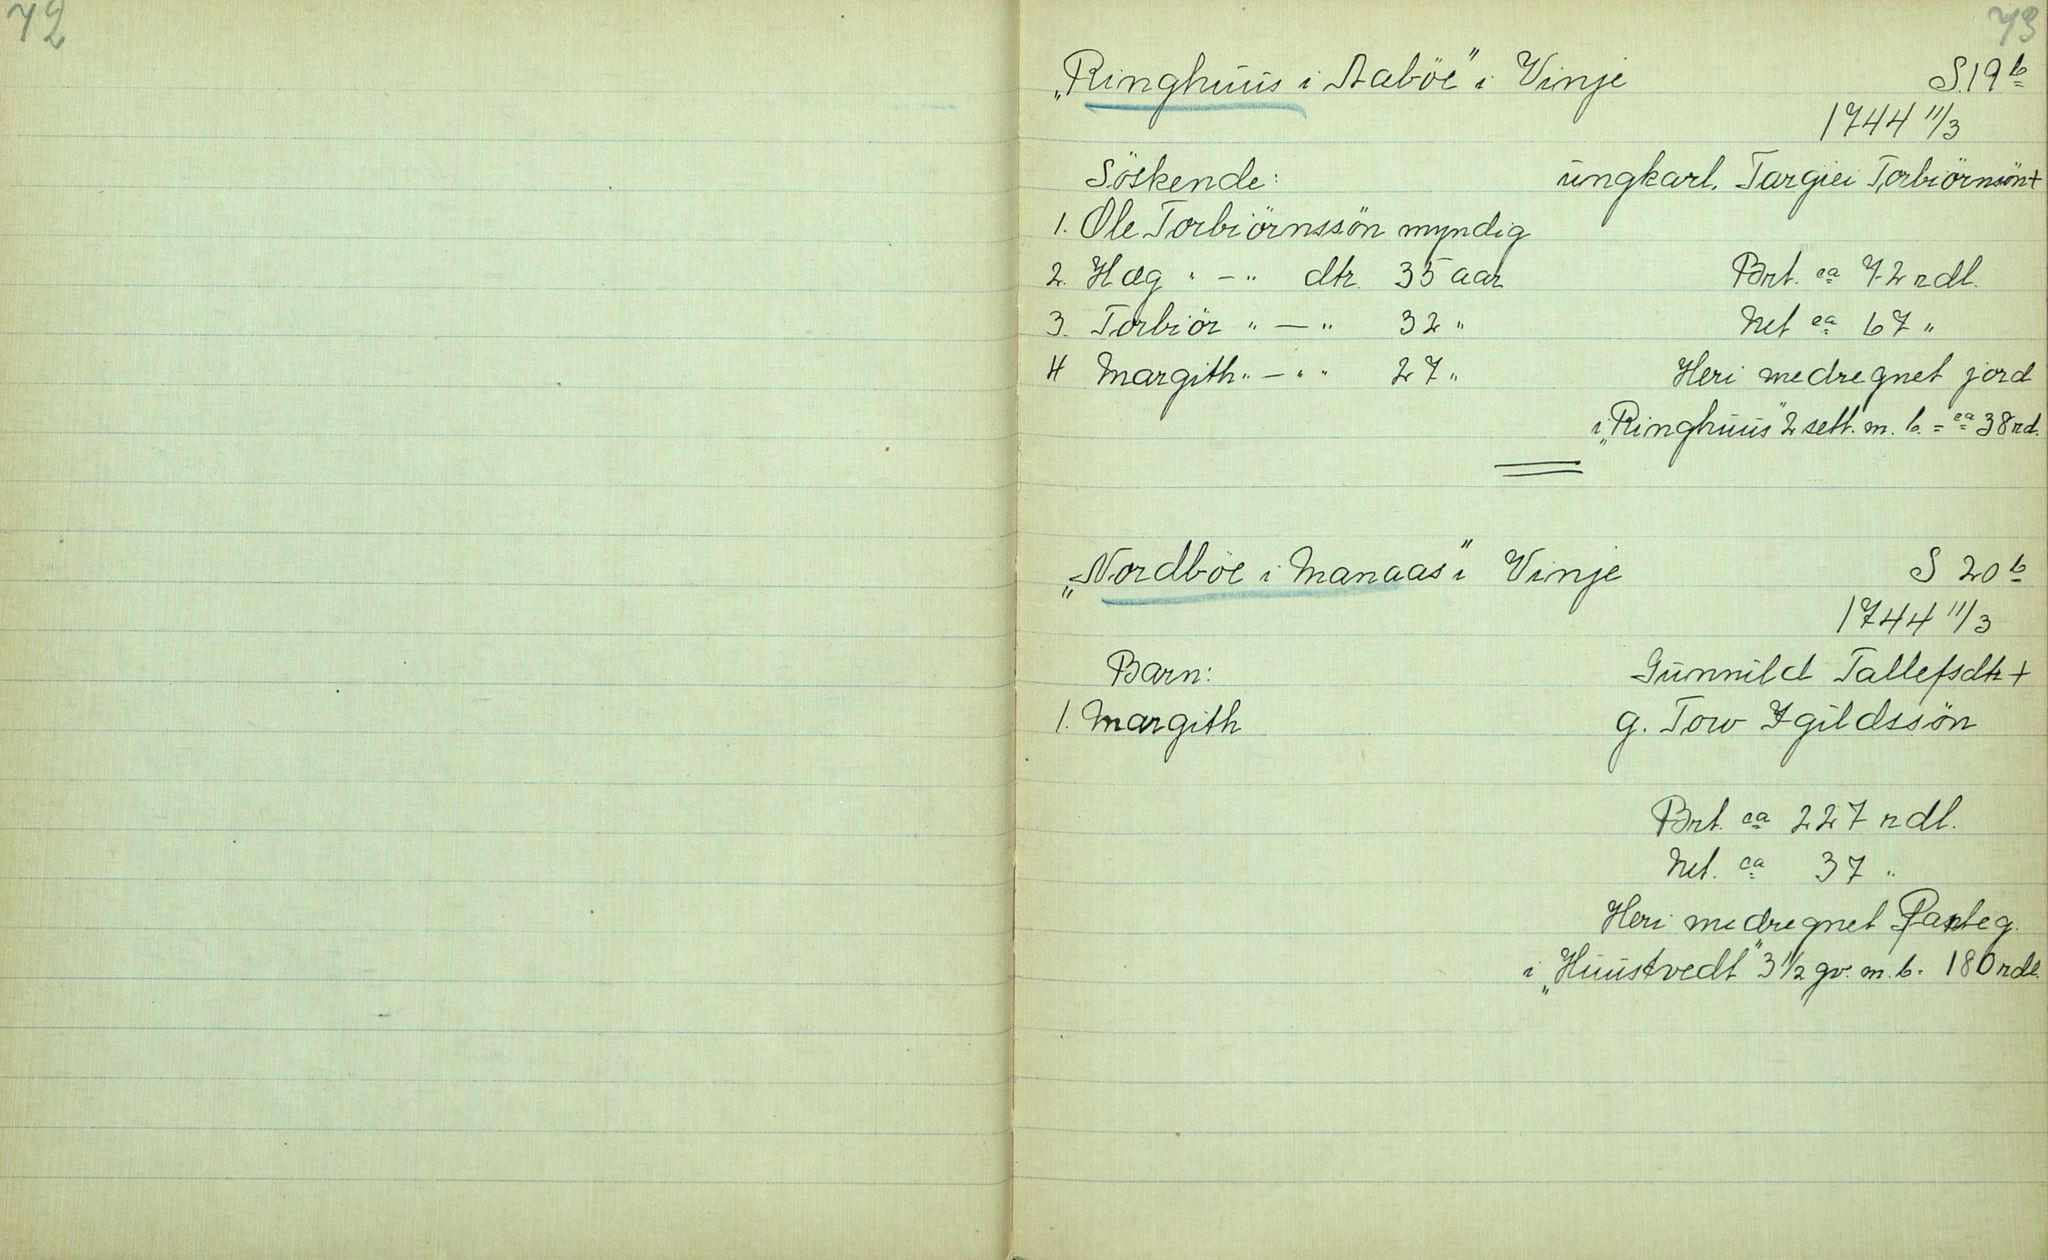 72
73
„Ringhuus i Aaböe" i Vinje S.19b
1744 11/3
Söskende: ungkarl. Targiei Torbiörnsön+
1. Ole Torbiörnssön myndig
2. Hæg " - " dtr. 35 aar Brt. ca 72 rdl.
3. Torbiör " - " 32 " Net ca 67 "
4 Margith " - " " 27 " Heri medregnet jord
i „Ringhuus" 2 sett. m. b. = ca 38 rd.
„Nordböe i Manaas" i Vinje S 20b
1744 11/3
Barn: Gunnild Tallefsdtr +
1. Margith g. Tow Igildssön
Brt. ca 227 rdl.
Net. ca 37 "
Heri medregnet Panteg.
i „Huustvedt" 3 1/2 gv. m. b. 180 rdl.